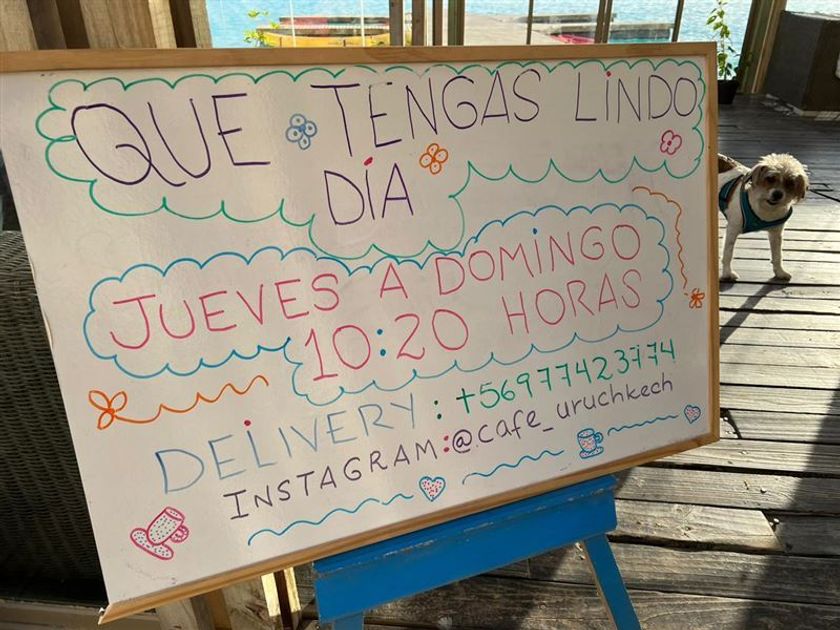 QUE TENGAS LINDO
DÍA
JUEVES A DOMINGO
10:20 HORAS
DELIVERY: +56977423774
INSTAGRAM: @cafe_uruchkech